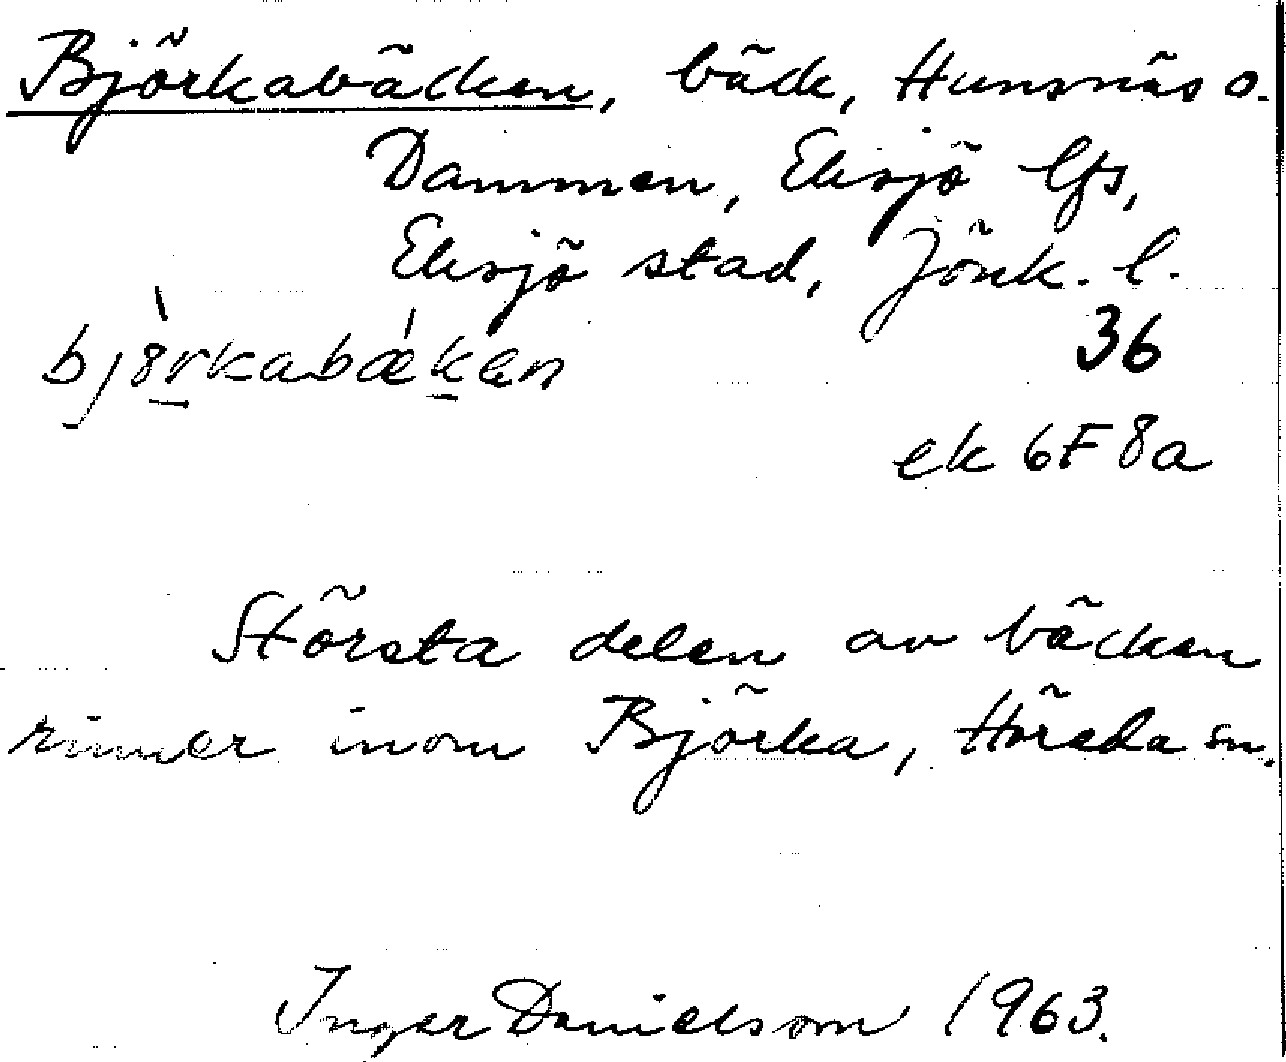 Björkabäcken, bäck, Hunsnäs o.
Dammen, Eksjö lfs,
Eksjö stad, Jönk. l.
bjòrkabǽkan
36
ek 6F 8a
Största delen av bäcken
rinner inom Björka, Höreda sn.
Inger Danielsson 1963.